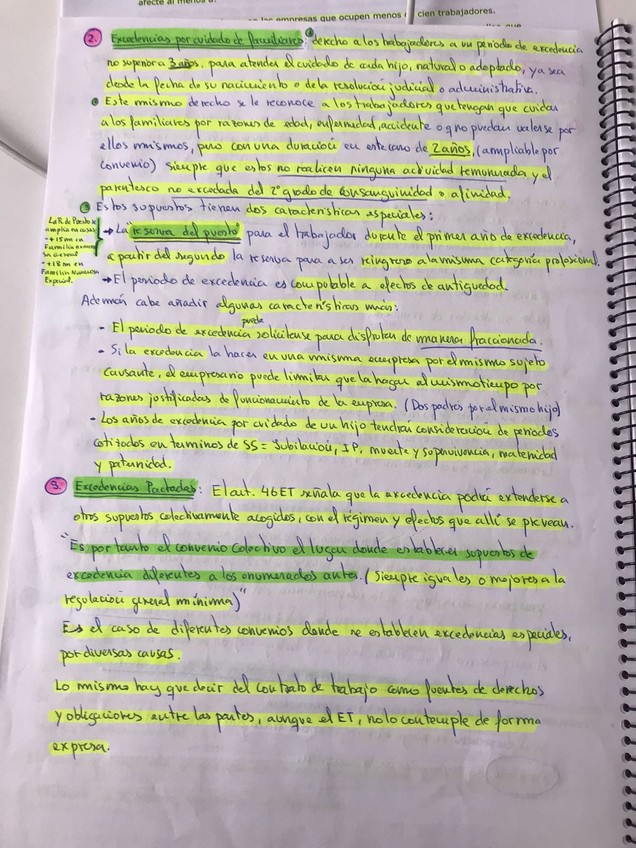 afecte al menos a:
empresas que ocupen menos
cien trabajadores.
2. Excedencias por cuidado de familiares: derecho a los trabajadores a un periodo de excedencia
no superior a 3 años, para atender el cuidado de cada hijo, natural o adoptado, ya sea
desde la fecha de su nacimiento o de la resolución judicial o administrativa.
Este mismo derecho se le reconoce a los trabajadores que tengan que cuidar
a los familiares por razones de edad, enfermedad, accidente o q no puedan valerse por
ellos mismos, pero con una duración en este caso de 2 años, (ampliable por
convenio) siempre que estos no realicen ninguna actividad remunerada y el
parentesco no excedada del 2º grado de consanguinidad o afinidad.
Estos supuestos tienen dos características especiales:
→ La "reserva del puesto" para el trabajador durante el primer año de excedencia,
a partir del segundo la reserva para a ser reingreso a la misma categoría profesional.
La R. de Puesto se
amplia en casos:
- +15 m en
Familia numerosa
General
- +18 m en
Familia Numerosa
Especial.
→ El periodo de excedencia es computable a efectos de antiguedad.
Además cabe añadir algunas características más:
- El periodo de excedencia puede solicitarse para disfrutar de manera fraccionada.
- Si la excedencia la hacen en una misma empresa por el mismo sujeto
causante, el empresario puede limitar que la hagan al mismo tiempo por
razones justificadas de funcionamiento de la empresa. (Dos padres por el mismo hijo)
- Los años de excedencia por cuidado de un hijo tendrán consideración de periodos
cotizados en terminos de SS = Jubilación, IP, muerte y supervivencia, maternidad
y paternidad.
3. Excedencias Pactadas: El art. 46 ET señala que la excedencia podrá extenderse a
otros supuestos colectivamente acogidos, con el régimen y efectos que allí se prevean.
"Es por tanto el convenio colectivo el lugar donde establecer supuestos de
excedencia diferentes a los enumerados antes. (siempre iguales o mejores a la
regulación general mínima)"
Es el caso de diferentes convenios donde se establecen excedencias especiales,
por diversas causas.
Lo mismo hay que decir del contrato de trabajo como fuentes de derechos
y obligaciones entre las partes, aunque el ET, no lo contemple de forma
expresa.